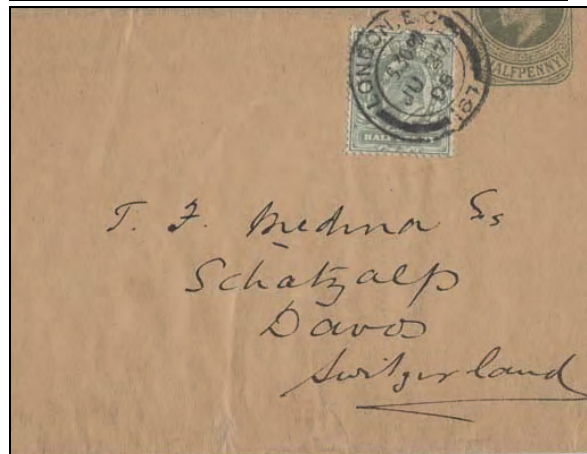 LONDON. E.C.
5.30 PM
JU 24
181
HALFPENNY
HALFPENNY
T. F. Medina Es
Schatzalp
Davos
Switzerland